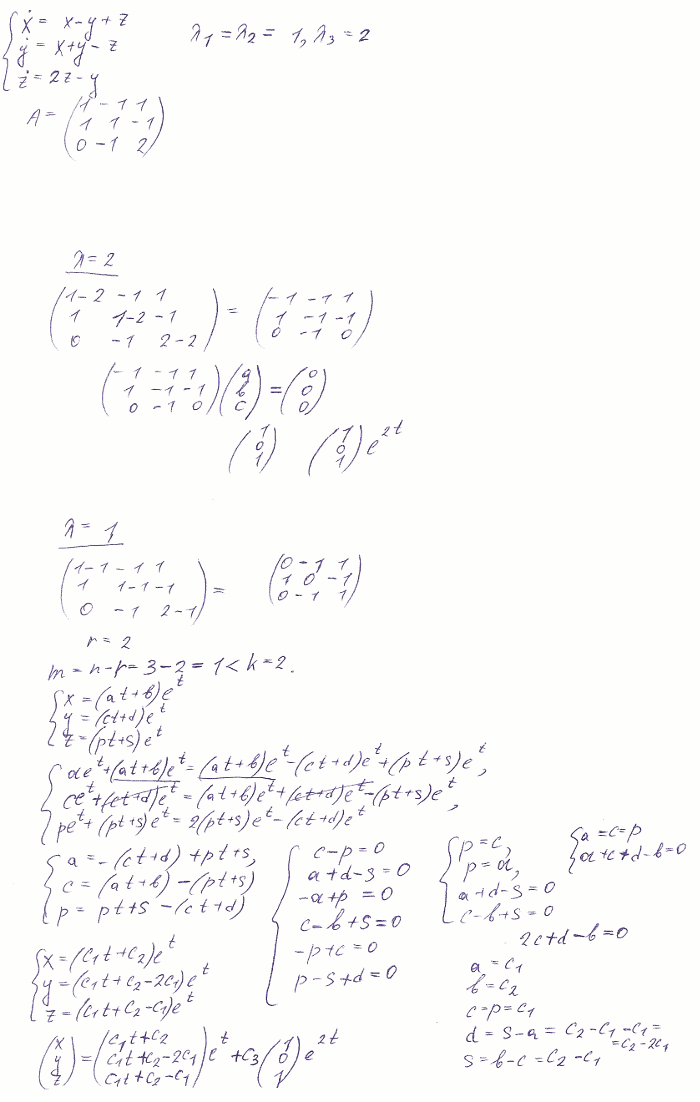 {ẋ = x-y+z    λ₁ = λ₂ = 1, λ₃ = 2
ẏ = x+y-z
ż = 2z-y
A = (1 -1 1
1 1 -1
0 -1 2)
λ = 2
(1-2 -1 1    = (-1 -1 1
1 1-2 -1    1 -1 -1
0 -1 2-2)    0 -1 0)
(-1 -1 1    (a    (0
1 -1 -1    в    = 0
0 -1 0)    c)    0)
(1 0 1)    (1 0 1) e^{2t}
λ = 1
(1-1 -1 1    (0 -1 1
1 1-1 -1    =    1 0 -1
0 -1 2-1)    0 -1 1)
r = 2
m = n-r = 3-2 = 1 < k = 2.
{x = (at+в)e^t
y = (ct+d)e^t
z = (pt+s)e^t
{ae^t+(at+в)e^t = (at+в)e^t-(ct+d)e^t+(pt+s)e^t,
ce^t+(ct+d)e^t = (at+в)e^t+(ct+d)e^t-(pt+s)e^t,
pe^t+(pt+s)e^t = 2(pt+s)e^t-(ct+d)e^t
{a = -(ct+d)+pt+s,
c = (at+в)-(pt+s)
p = pt+s-(ct+d)
{c-p=0
a+d-s=0
-a+p=0
c-в+s=0
-p+c=0
p-s+d=0
{p=c,
p=a,
a+d-s=0
c-в+s=0
{a=c=p
a+c+d-в=0
2c+d-в=0
a=c₁
в=c₂
c=p=c₁
d=s-a=c₂-c₁-c₁=
=c₂-2c₁
s=в-c=c₂-c₁
{x=(c₁t+c₂)e^t
y=(c₁t+c₂-2c₁)e^t
z=(c₁t+c₂-c₁)e^t
(x    (c₁t+c₂    (1
y = c₁t+c₂-2c₁    e^t+c₃    0    e^{2t}
z)    c₁t+c₂-c₁)    1)